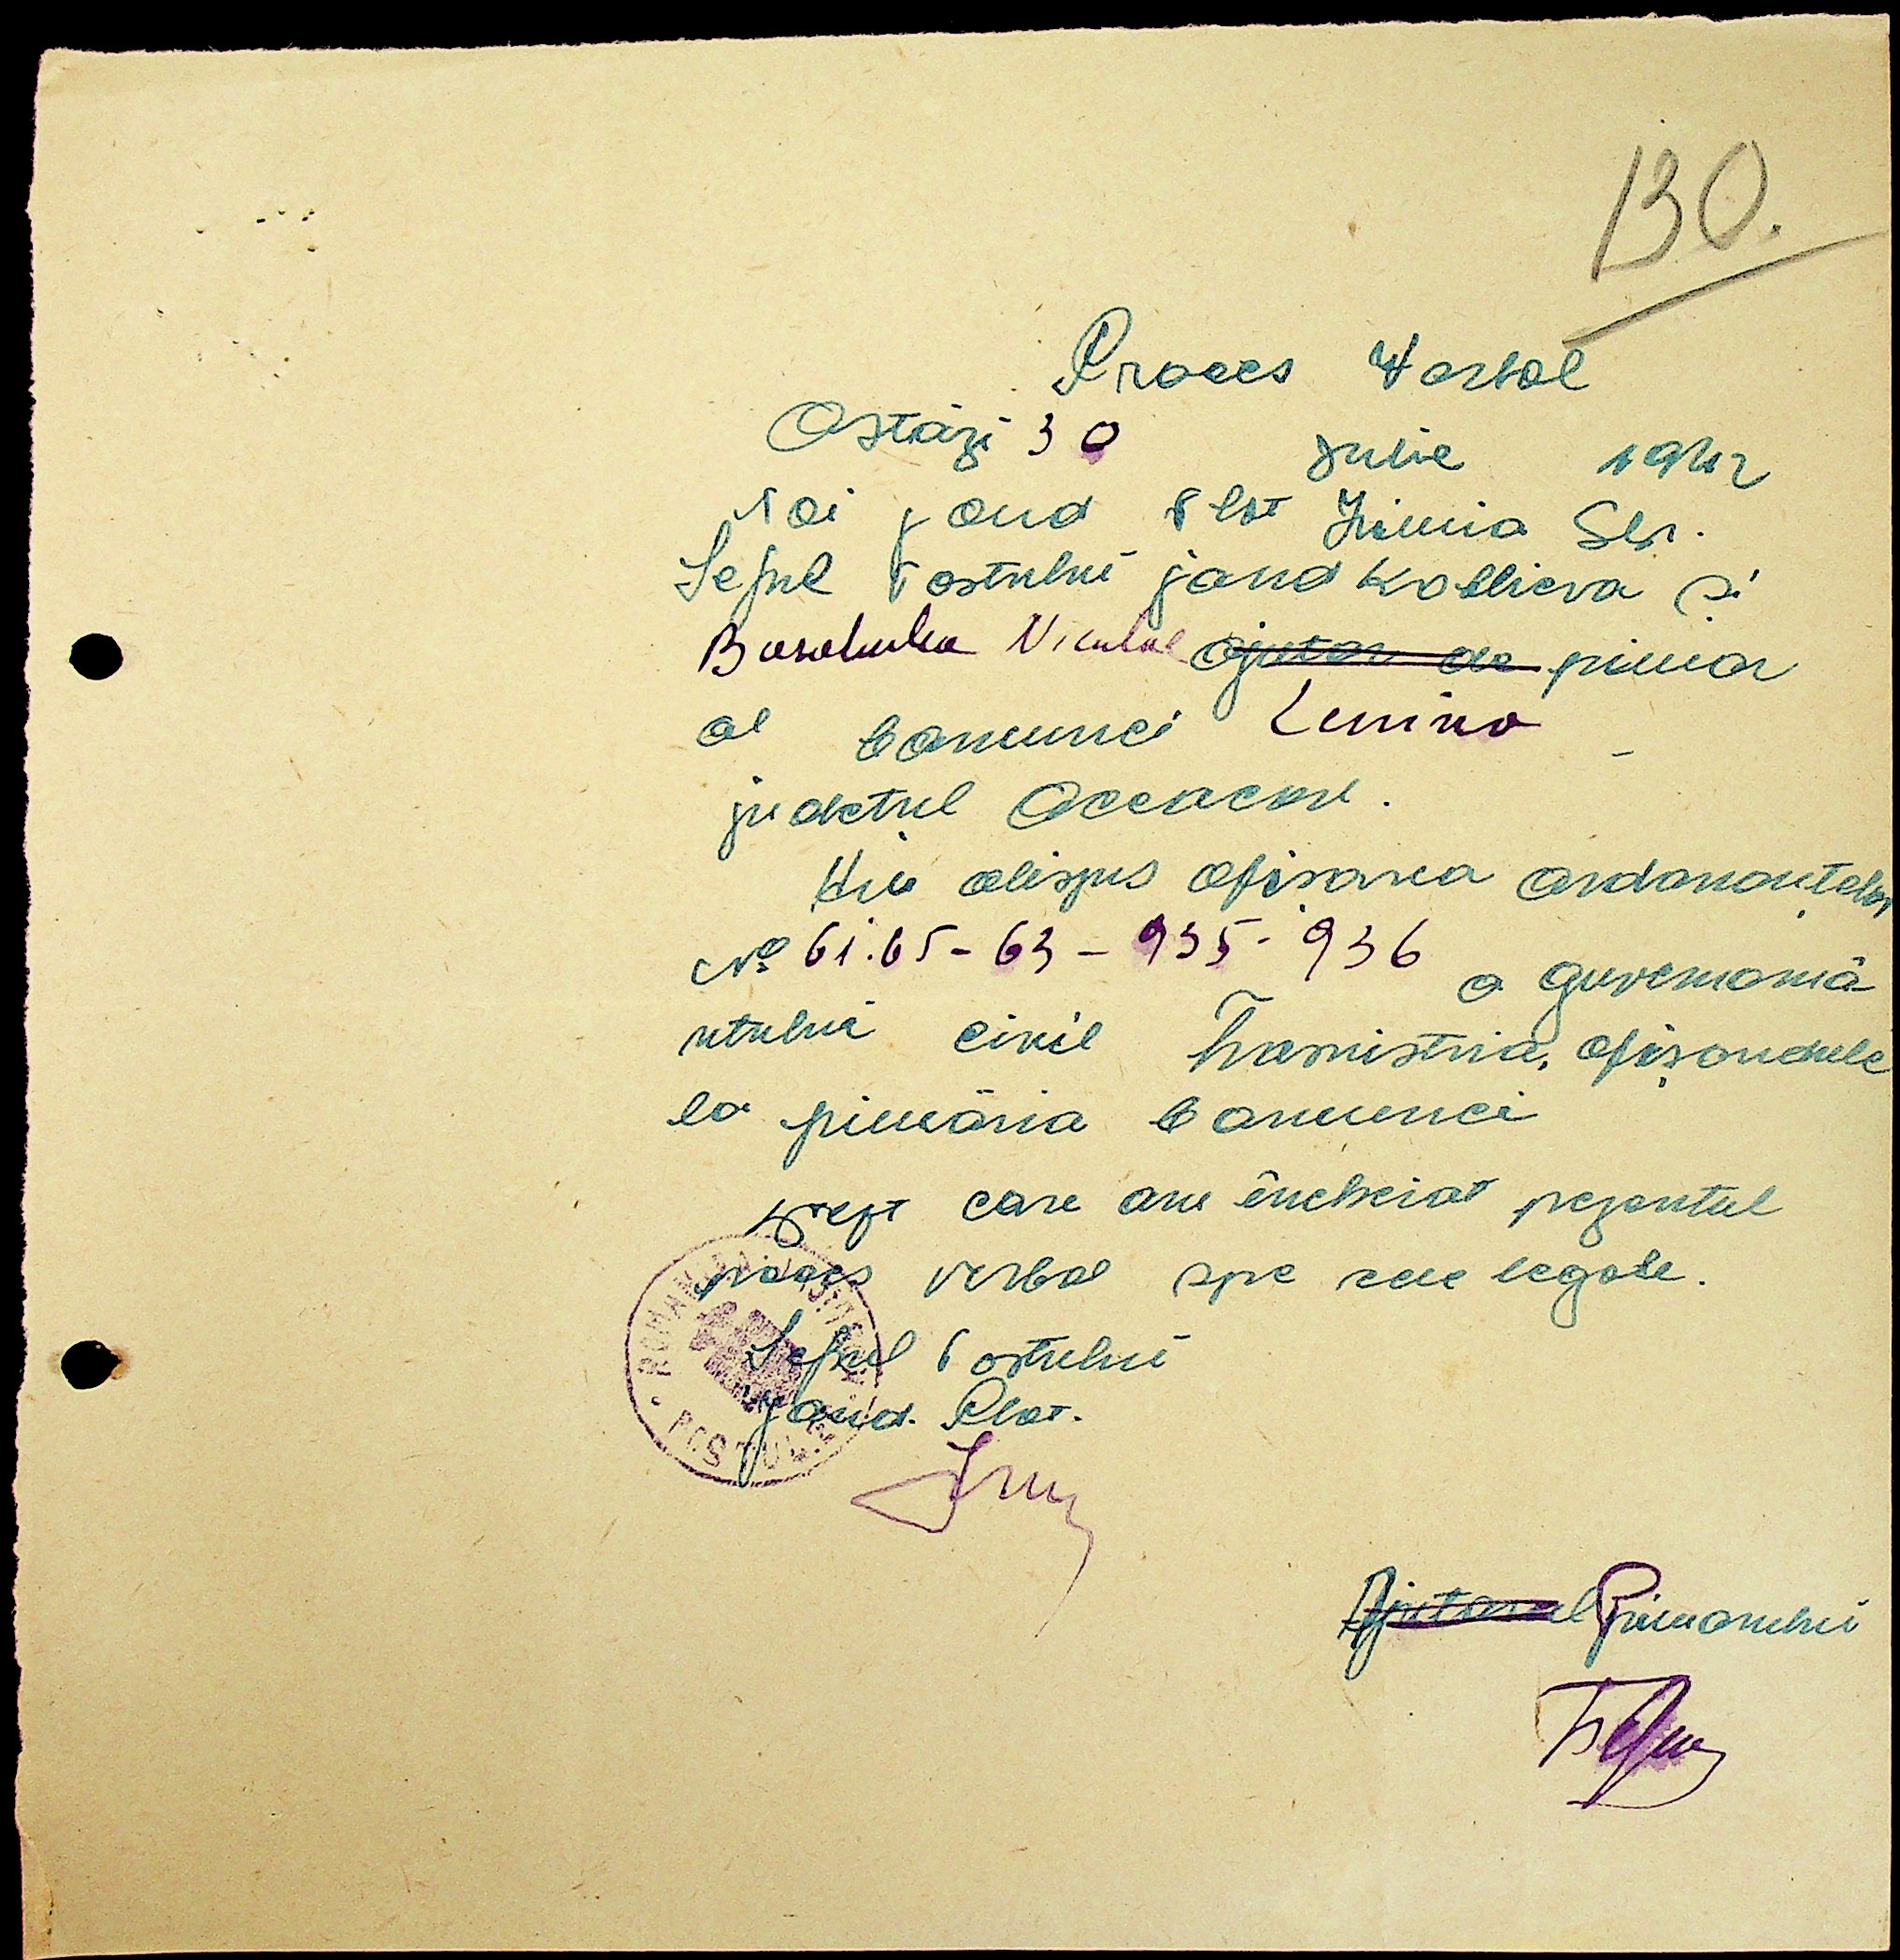 130.
Proces Verbal
Astăzi 30 Iulie 1942
Noi jand Plot Irimia Gh.
Șeful Postului jand Koblieva și
Nicolae ajutor de primar
al Comunei Lenino
județul Oceacov.
Am dispus afișarea ordonanțelor
No 61.65-63-935-936 a guvernamă
ntului civil Transnistria, afișandule
la primăria Comunei
Drept care am încheiat prezentul
proces verbal spre cele legale.
Șeful Postului
Jand. Plot.
POSTUL
Ajutorul Primarului